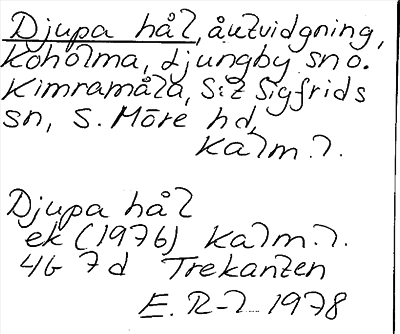 Djupa hål, åutvidgning,
Koholma, Ljungby sn o.
Kimramåla, S:t Sigfrids
sn, S. Möre hd,
Kalm. l.
Djupa hål
ek (1976) Kalm. l.
4G 7d Trekanten
E. R-l 1978